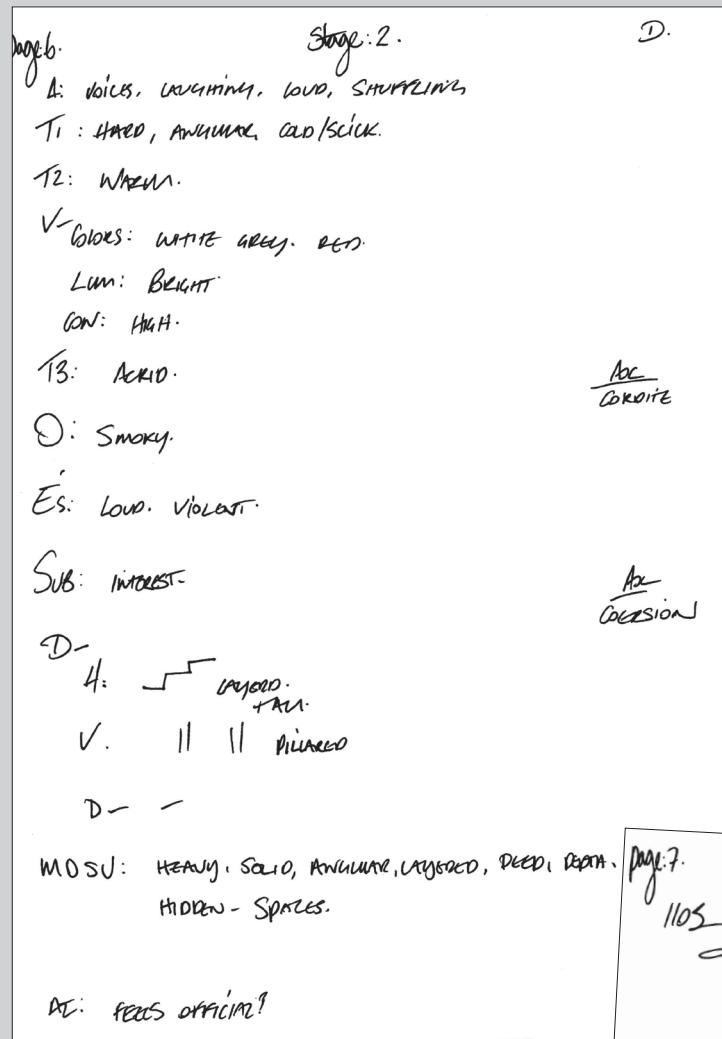 page: 6.
Stage: 2.
D.
A: Voices, LAUGHING, LOUD, SHUFFLING
T1: HARD, ANGULAR, COLD/SLICK.
T2: WARM.
V- Colors: WHITE GREY. RED.
Lum: BRIGHT.
CON: HIGH.
T3: ACRID.
AOL
CORDITE
O: SMOKY.
Es: LOUD. VIOLENT.
SUB: INTEREST-
AOL
COERSION
D-
H: LAYERD.
TALL.
V. PILLARED
D- -
MDSU: HEAVY, SOLID, ANGULAR, LAYERED, DEEP, DEPTH.
HIDDEN - SPACES.
AI: FEELS OFFICIAL?
page: 7.
1105